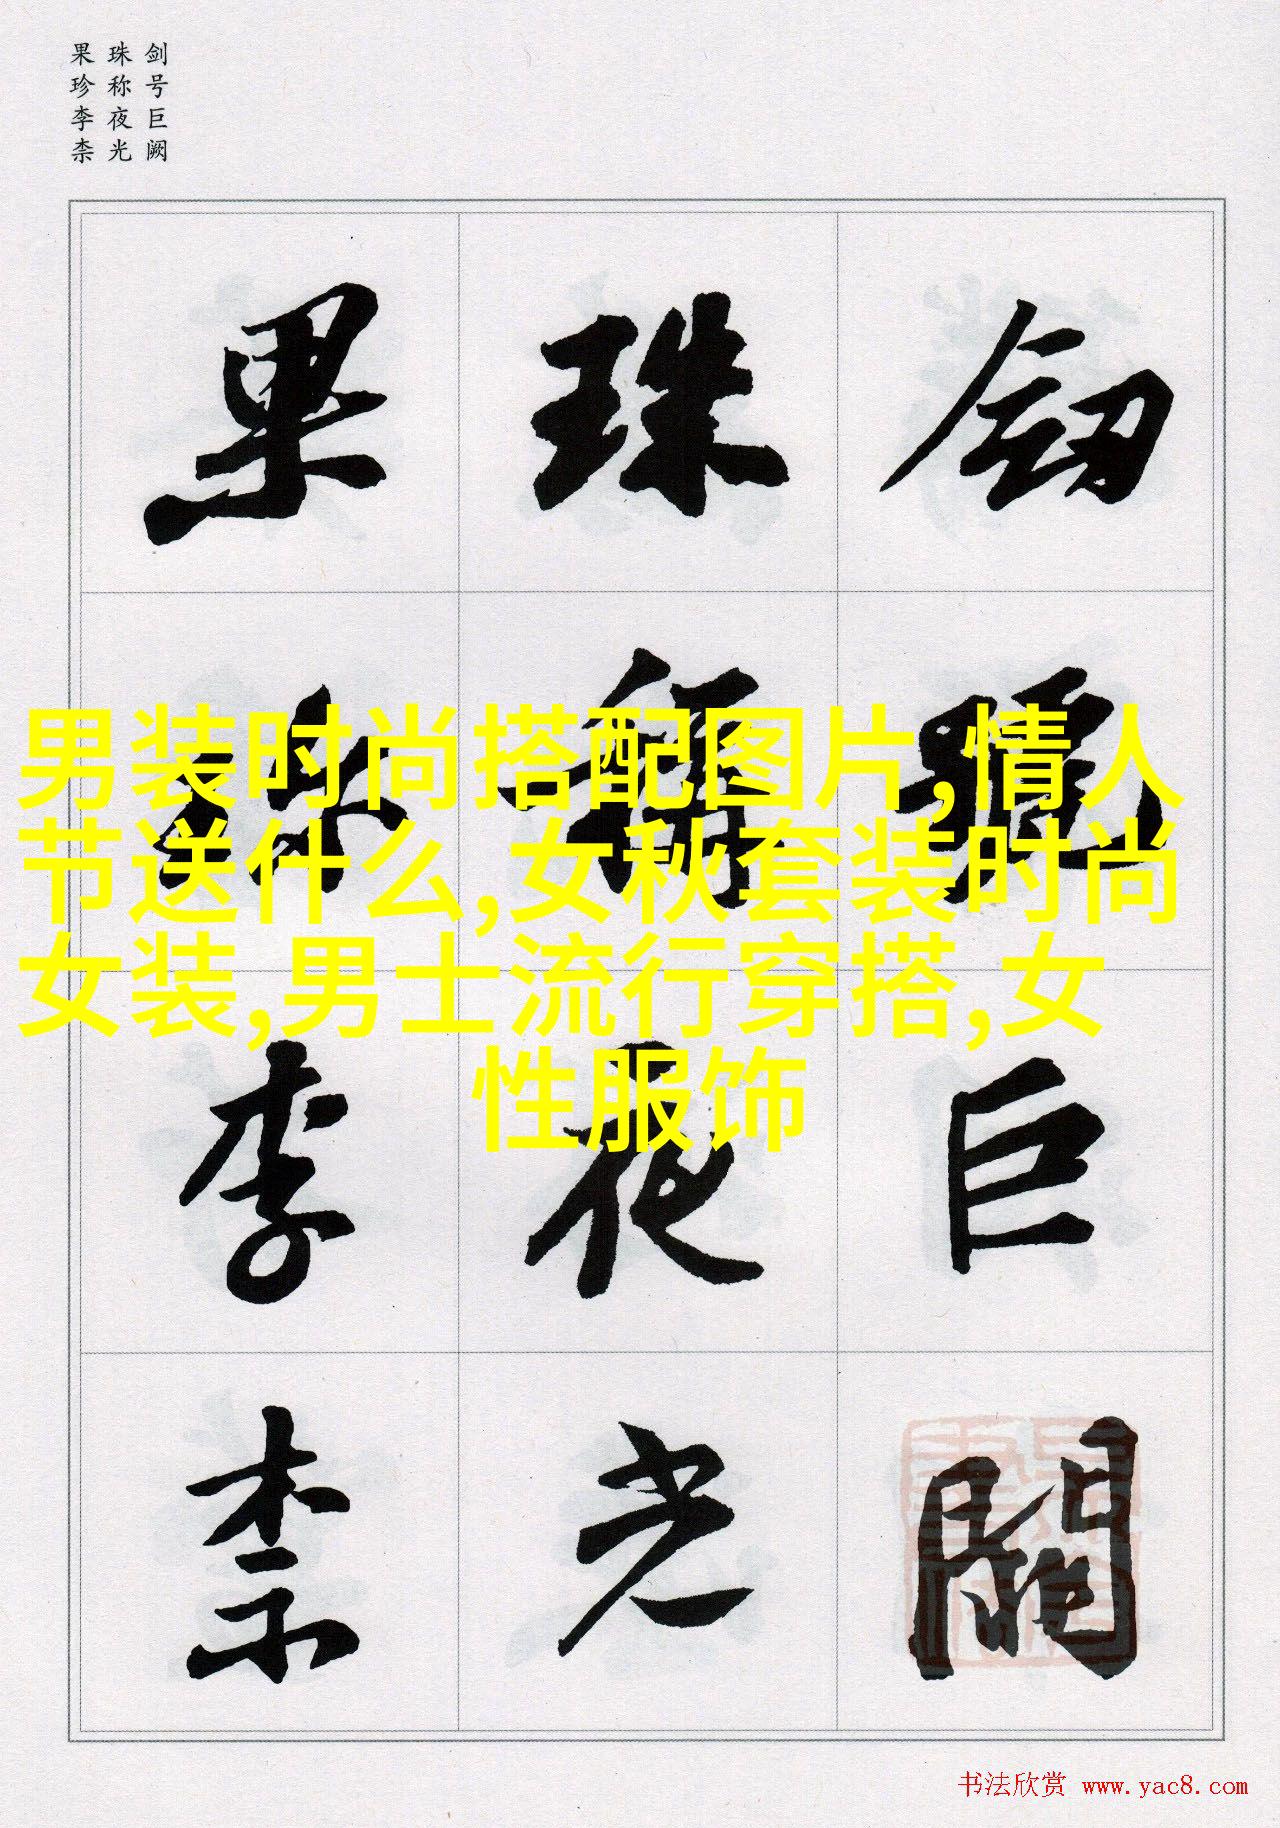 剑号巨阙
珠称夜光
果珍李柰
劒號巨闕
珠稱夜光
果珎李柰
男装时尚搭配图片,情人
节送什么,女秋套装时尚
女装,男士流行穿搭,女
性服饰
书法欣赏 www.yac8.com